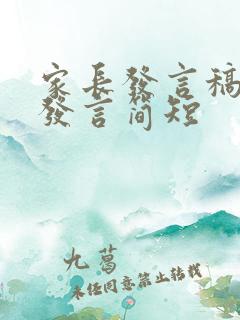 家长發言稿
發言简短
九葛
未经同意禁止转载